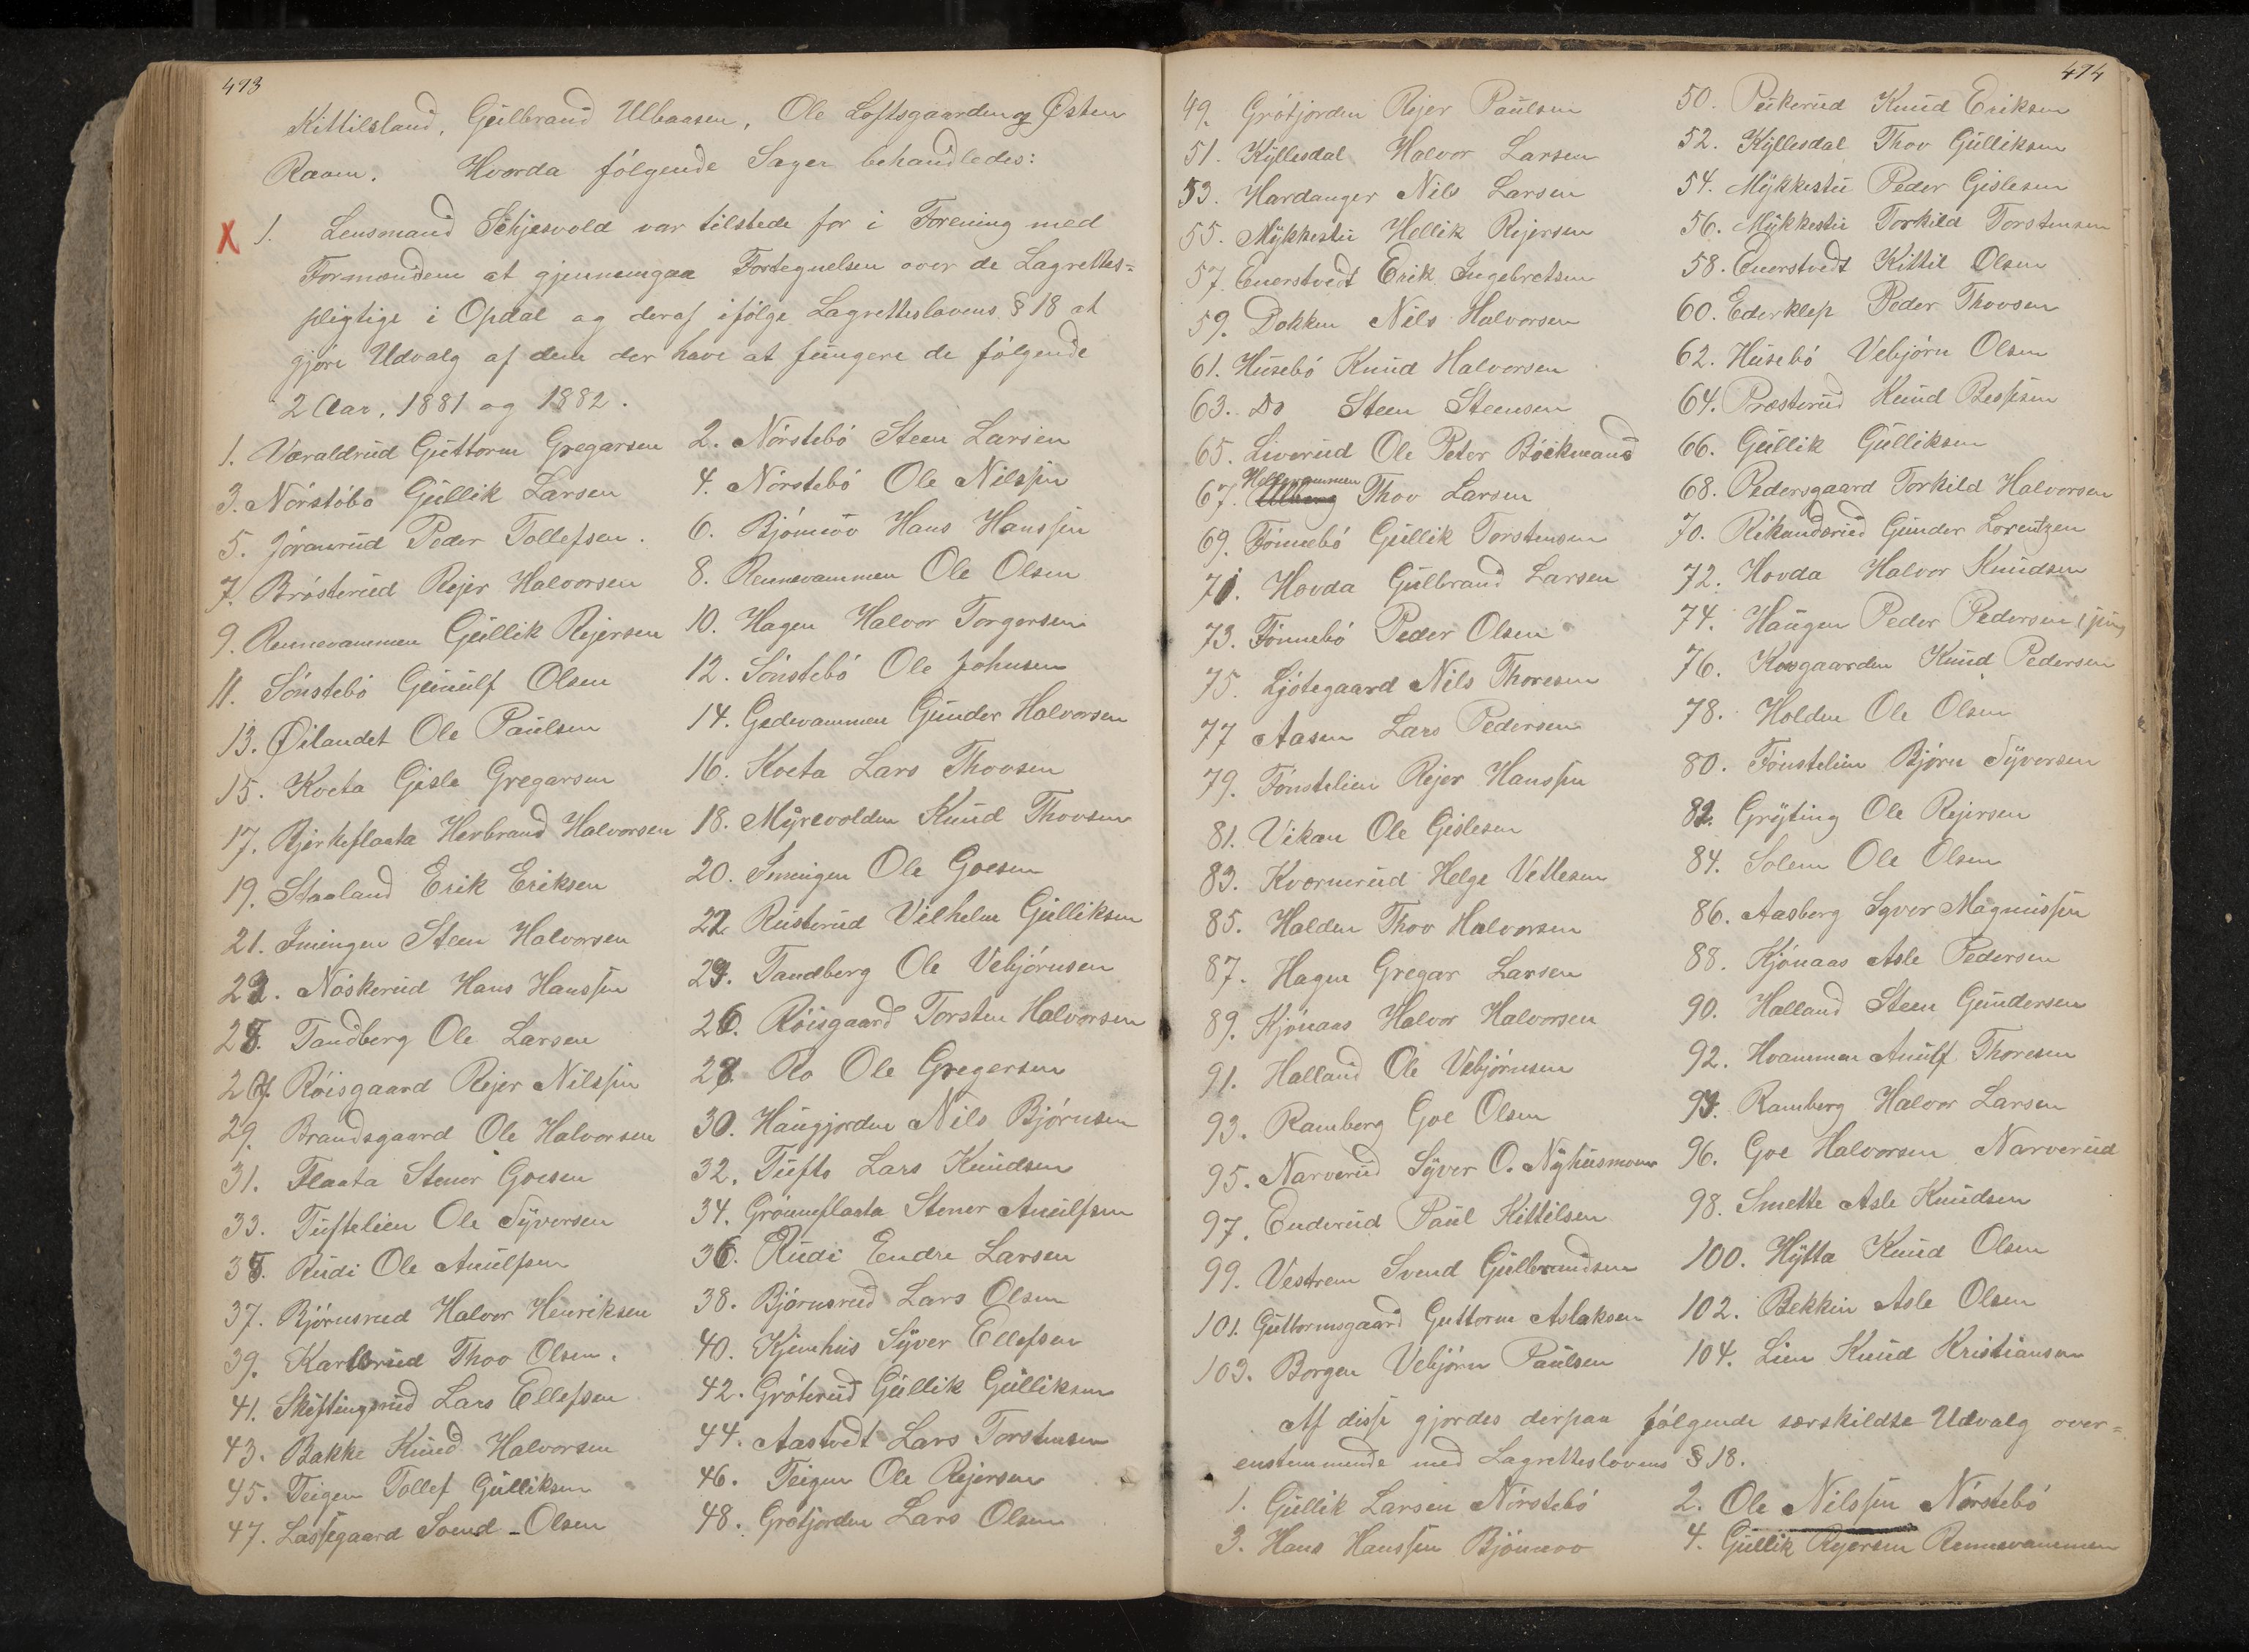 493
Kittilsland, Gulbrand Ulbaasen, Ole Loftsgaarden og Østen
Raaen. Hvorda følgende Sager behandledes:
X 1. Lensmand Schjesvold var tilstede for i Forening med
Formændene at gjennemgaa Fortegnelsen over de Lagrettes-
pligtige i Opdal og deraf ifølge Lagretteslovens § 18 at
gjøre Udvalg af dem der have at fungere de følgende
2 Aar, 1881 og 1882.
1. Væraldrud Guttorm Gregarsen
2. Nørstebø Steen Larsen
3. Nørstøbø Gullik Larsen
4. Nørstebø Ole Nilssen
5. Jøranrud Peder Tollefsen.
6. Bjømoo Hans Hanssen
7. Brøsterud Rejer Halvorsen
8. Rennevammen Ole Olsen
9. Rennevammen Gullik Rejersen
10. Hagen Halvor Torgersen
11. Sønstebø Gunulf Olsen
12. Sønstebø Ole Johnsen
13. Øilandet Ole Paulsen
14. Gedevammen Gunder Halvorsen
15. Kveta Gisle Gregarsen
16. Kveta Lars Thovsen
17. Bjerkeflaata Herbrand Halvorsen
18. Myrevolden Knud Thovsen
19. Staaland Erik Eriksen
20. Imingen Ole Goesen
21. Imingen Steen Halvorsen
22. Rusterud Vilhelm Gulliksen
23. Nøskerud Hans Hanssen
24. Tandberg Ole Vebjørnsen
25. Tandberg Ole Larsen
26. Røisgaard Torsten Halvorsen
27. Røisgaard Rejer Nilssen
28. Ro Ole Gregersen
29. Brandsgaard Ole Halvorsen
30. Haugjorden Nils Bjørnsen
31. Flaata Stener Goesen
32. Tufto Lars Knudsen
33. Tuftelien Ole Syversen
34. Grønneflaata Stener Anulfsen
35. Rudi Ole Anulfsen
36. Rudi Endre Larsen
37. Bjørnsrud Halvor Henriksen
38. Bjørnsrud Lars Olsen
39. Karlsrud Thov Olsen.
40. Kjemhus Syver Ellefsen
41. Skiftingsrud Lars Ellefsen
42. Grøterud Gullik Gulliksen
43. Bakke Knud Halvorsen
44. Aastvedt Lars Torstensen
45. Teigen Tollef Gulliksen
46. Teigen Ole Rejersen
47. Lassegaard Svend Olsen
48. Grøtjorden Lars Olsen
494
49. Grøtjorden Rejer Paulsen
50. Peikerud Knud Eriksen
51. Kyllesdal Halvor Larsen
52. Kyllesdal Thov Gulliksen
53. Hardanger Nils Larsen
54. Mykkestu Peder Gislesen
55. Mykkestu Hellik Rejersen
56. Mykkestu Torkild Torstensen
57. Enerstvedt Erik Ingebretsen
58. Enerstvedt Kittil Olsen
59. Dokken Nils Halvorsen
60. Ederklep Peder Thovsen
61. Husebø Knud Halvorsen
62. Husebø Vebjørn Olsen
63. Do Steen Steensen
64. Præsterud Knud Bessesen
65. Liverud Ole Peter Bøckmand
66. Gullik Gulliksen
67. Thov Larsen
68. Pedersgaard Torkild Halvorsen
69. Fønnebø Gullik Torstensen
70. Rikandsrud Gunder Lorentzen
71. Hovda Gulbrand Larsen
72. Hovda Halvor Knudsen
73. Fønnebø Peder Olsen
74. Haugen Peder Pedersen
75. Ljøtegaard Nils Thoresen
76. Kosgaarden Knud Pedersen
77 Aasen Lars Pedersen
78. Holden Ole Olsen
79. Fønstelien Rejer Hanssen
80. Fønstelien Bjørn Syversen
81. Vikan Ole Gislesen
82. Grøting Ole Rejersen
83. Kvernerud Helge Vetlesen
84. Solem Ole Olsen
85. Halden Thov Halvorsen
86. Aasberg Syver Magnussen
87. Hagen Gregar Larsen
88. Kjønaas Asle Pedersen
89. Kjønaas Halvor Halvorsen
90. Halland Steen Gundersen
91. Halland Ole Vebjørnsen
92. Hvammen Anulf Thoresen
93. Ramberg Goe Olsen
94. Ramberg Halvor Larsen
95. Narverud Syver O. Nyhusmoen
96. Goe Halvorsen Narverud
97. Enderud Paul Kittilsen
98. Smette Asle Knudsen
99. Vestrem Svend Gulbrandsen
100. Hytta Knud Olsen
101. Guttormsgaard Guttorm Aslaksen
102. Bekkin Asle Olsen
103. Borgen Vebjørn Paulsen
104. Lien Knud Kristiansen
Af disse gjordes derpaa følgende særskildte Udvalg over-
enstemmende med Lagretteslovens § 18.
1. Gullik Larsen Nørstebø
2. Ole Nilssen Nørstebø
3. Hans Hanssen Bjømoo
4. Gullik Rejersen Rennevammen